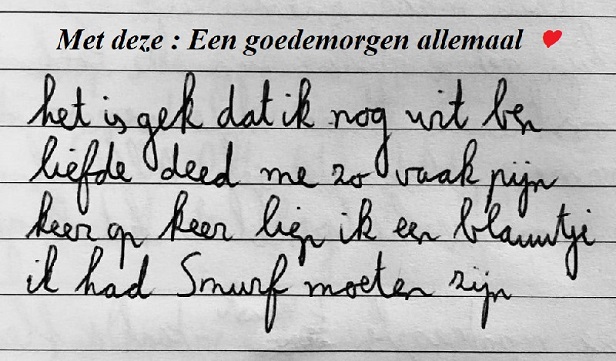 Met deze : Een goedemorgen allemaal
het is gek dat ik nog wit ben
liefde deed me zo vaak pijn
keer op keer liep ik een blauwtje
ik had Smurf moeten zijn